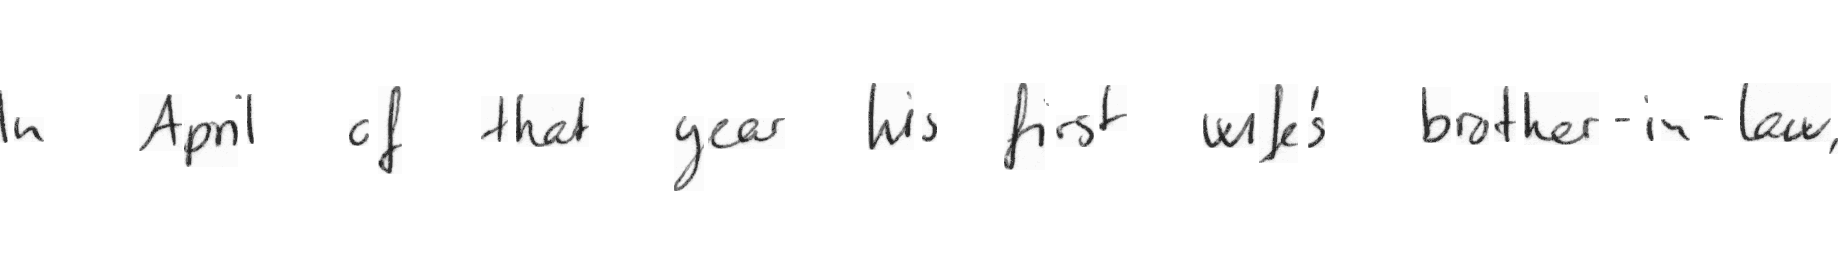 In April of that year his first wife's brother-in-law,